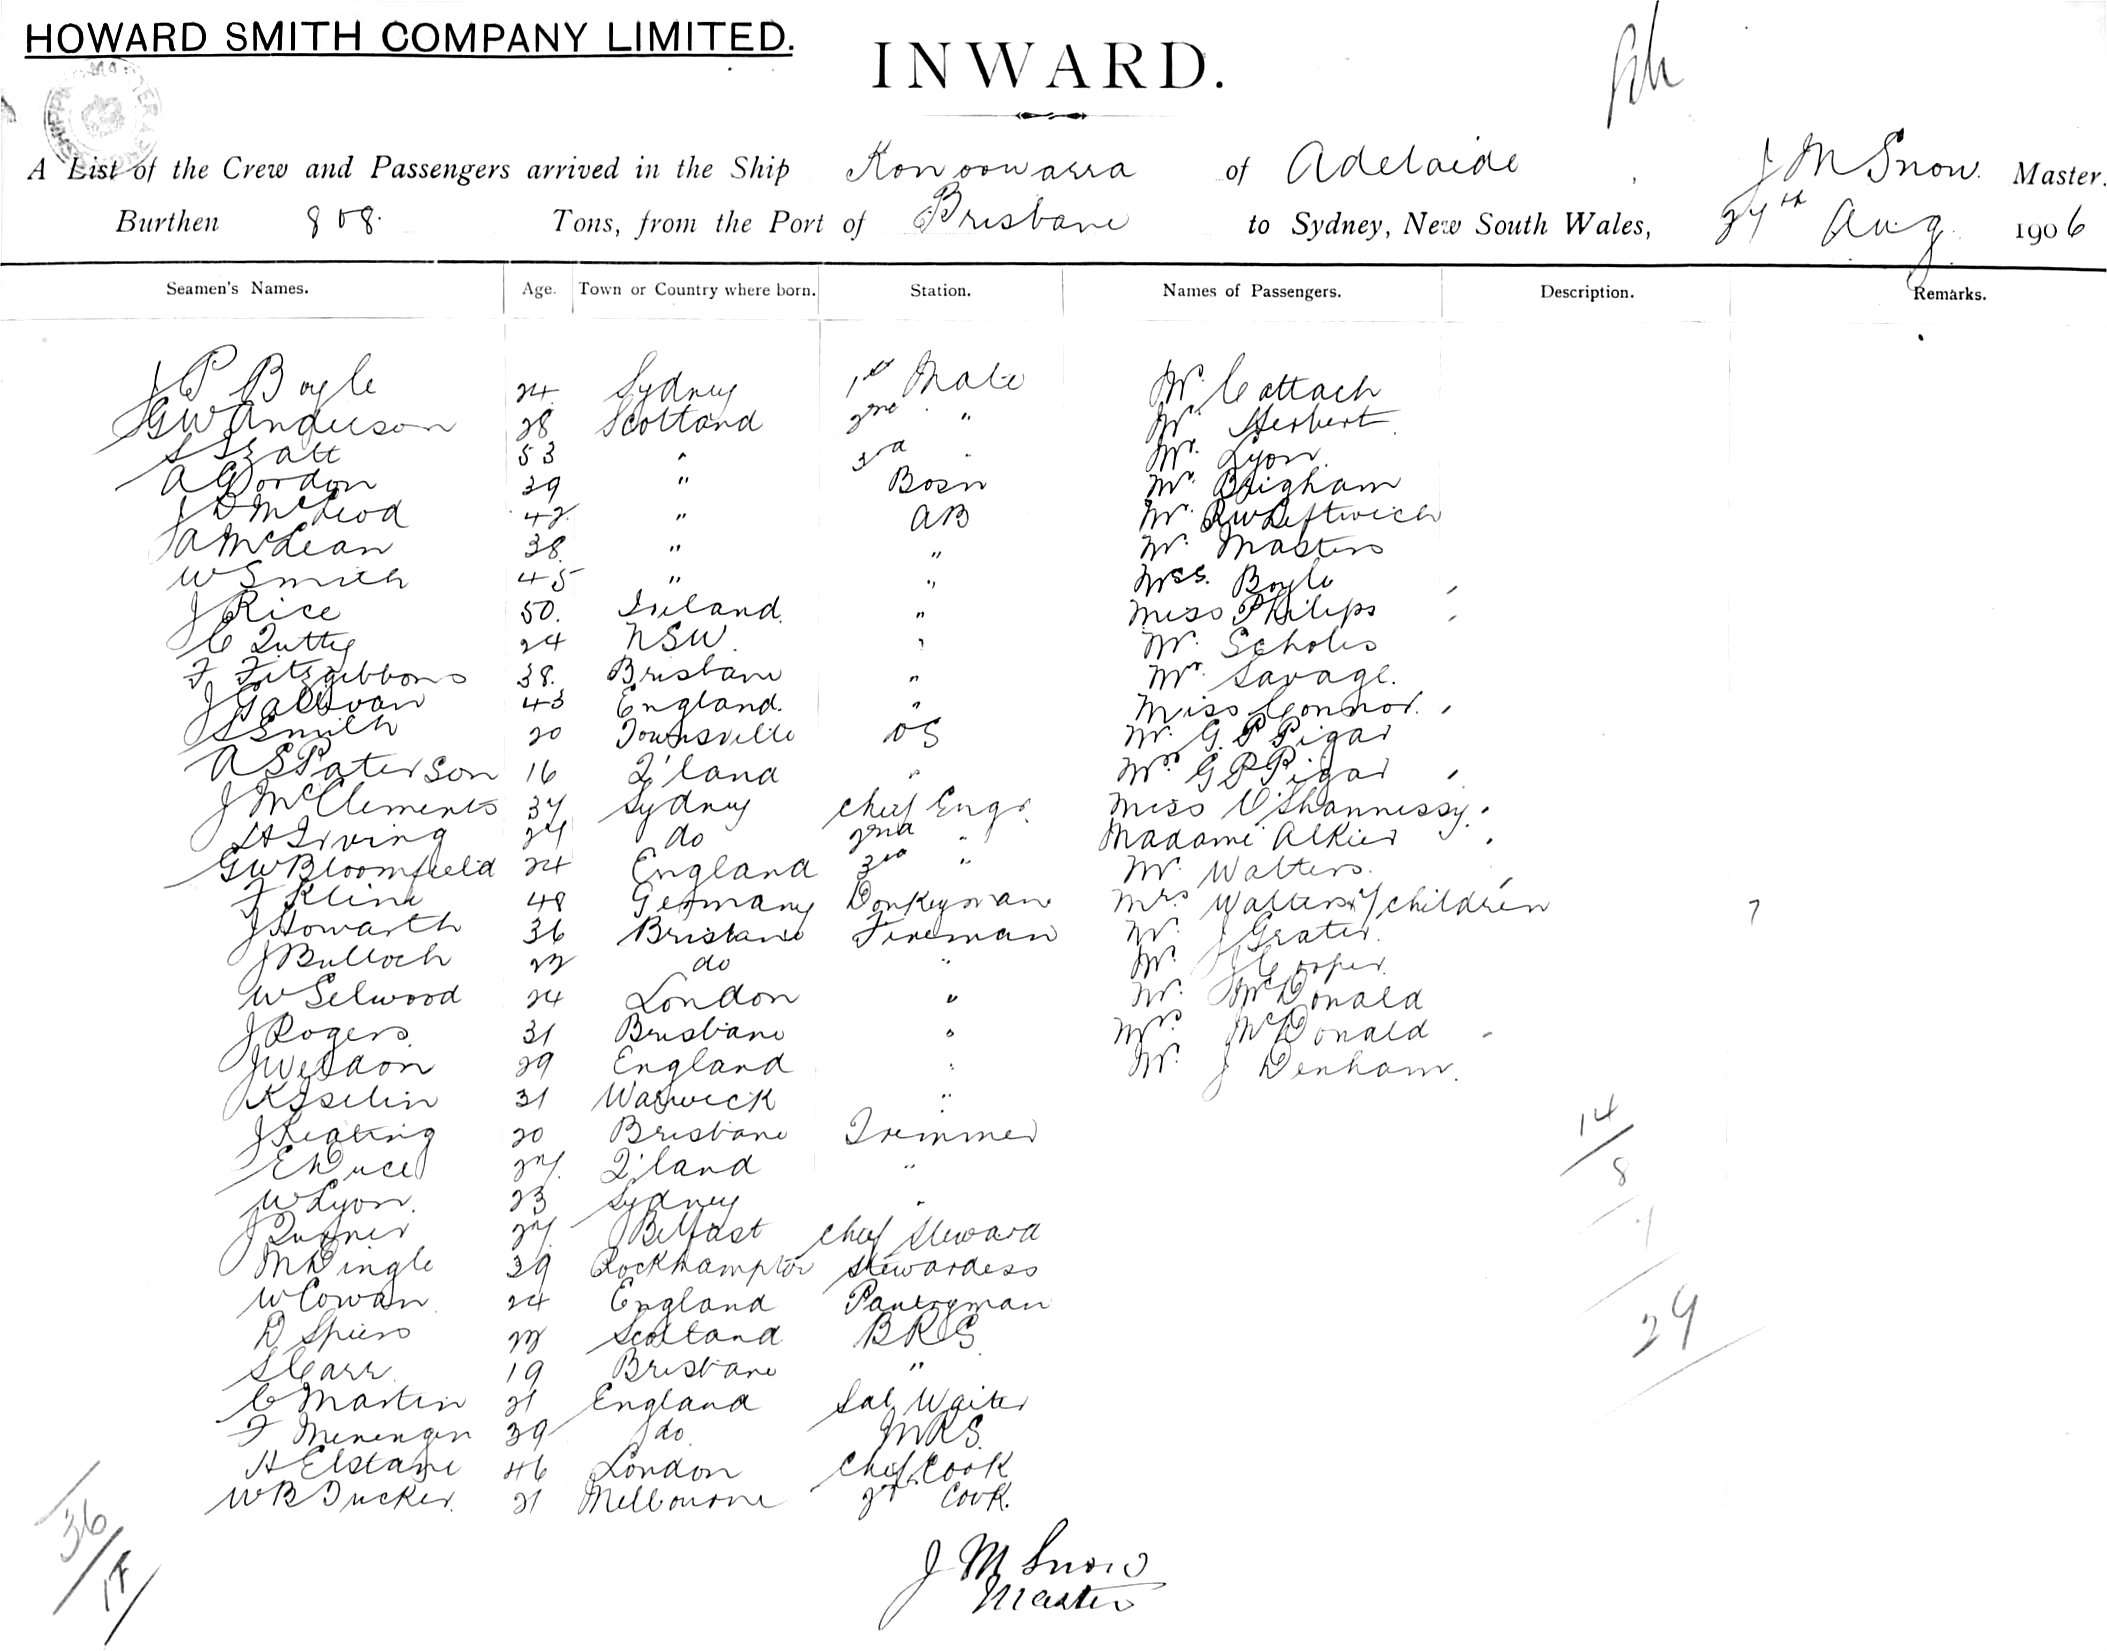 HOWARD SMITH COMPANY LIMITED.
INWARD.
A List of the Crew and Passengers arrived in the Ship Konoowarra of Adelaide, J M Snow. Master.
Burthen 808. Tons, from the Port of Brisbane to Sydney, New South Wales, 27th Aug. 1906
Seamen's Names. Age. Town or Country where born. Station. Names of Passengers. Description. Remarks.
J P Boyle 24. Sydney 1st Mate Mr. Cattach
GW Anderson 28 Scotland 2nd " Mr. Herbert
S 53 " 3rd " Mr. Lyon
A Gordon 39 " Bosn Mr. Brigham
J D McLeod 42 " AB Mr. RW Leftwich
A McLean 38. " " Mr. Masters
W Smith 45 " " Mrs. Boyle
J Rice 50. Ireland. " Miss Philips
C Tutty 24 NSW. " Mr. Scholes
F Fitzgibbons 38. Brisbane " Mr. Savage.
J Gallivan 43 England. " Miss Connor.
S Smith 20 Townsville OS Mr. G. P Pigar
A S Paterson 16 Q'land " Mrs G P Pigar
J McClements 37 Sydney Chief Engr. Miss O'Shannessy.
H Irving 27 do 2nd " Madame Alkier
GW Bloomfield 24 England 3rd " Mr. Walters.
F Kline 48 Germany Donkeyman Mrs Walters children 7
J Howarth 36 Brisbane Fireman Mr. J Grater.
J Bulloch 22 do " Mr. J Cooper.
W Selwood 24 London " Mr. McDonald
J Rogers. 31 Brisbane " Mrs McDonald
J Weldon 29 England " Mr. J Denham.
K Iselin 31 Warwick "
J Keating 20 Brisbane Trimmer
E Duce 27. Q'land "
W Lyon. 23 Sydney "
J Turner 27. Belfast Chief Steward
M Dingle 39 Rockhampton Stewardess
W Cowan 24 England Pantryman
D Spiers 22 Scotland BRS.
S Carr. 19 Brisbane "
C Martin 21 England Sal Waiter
F 39 do. MRS.
H Elstane 46 London Chief Cook
W B Tucker. 21 Melbourne 2nd Cook.
14
8
7
29
36
17
J M Snow
Master